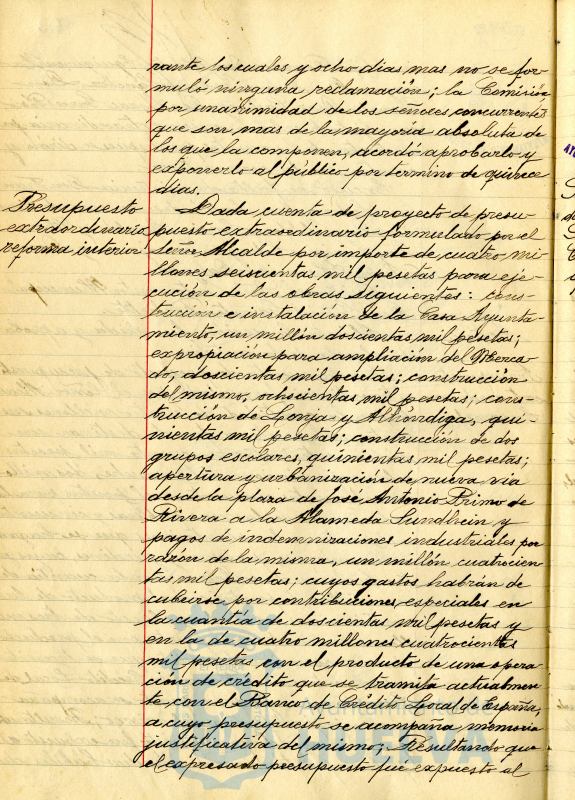 rante los cuales y ocho dias mas no se for-
muló ninguna reclamación; la Comisión
por unanimidad de los señores concurrentes
que son mas de la mayoria absoluta de
los que la componen, acordó aprobarlo y
exponerlo al público por termino de quince
dias.
Presupuesto
extraordinario
reforma interior
Dada cuenta de proyecto de presu-
puesto extraordinario formulado por el
Señor Alcalde por importe de cuatro mi-
llones seiscientas mil pesetas para eje-
cución de las obras siguientes: cons-
trucion e instalación de la Casa Ayunta-
miento, un millón doscientas mil pesetas;
expropiación para ampliación del Merca-
do, doscientas mil pesetas; construcción
del mismo, ochocientas mil pesetas; cons-
trucción de Lonja y Alhóndiga, qui-
nientas mil pesetas; construcción de dos
grupos escolares, quinientas mil pesetas;
apertura y urbanización de nueva via
desde la plaza de José Antonio Primo de
Rivera a la Alameda Sundhein y
pagos de indemnizaciones industriales por
razón de la misma, un millón cuatrocien-
tas mil pesetas; cuyos gastos habrán de
cubrirse por contribuciones especiales en
la cuantía de doscientas mil pesetas y
en la de cuatro millones cuatrocientas
mil pesetas con el producto de una opera-
ción de crédito que se tramita actualmen-
te con el Banco de Crédito Local de España,
a cuyo presupuesto se acompaña memoria
justificativa del mismo; Resultando que
el expresado presupuesto fue expuesto al